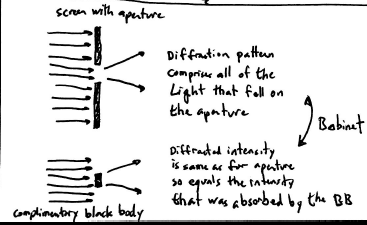 screen with aperture
Diffraction pattern
comprises all of the
Light that fell on
the aperture
Babinet
Diffracted intensity
is same as for aperture
so equals the intensity
that was absorbed by the BB
complimentary black body